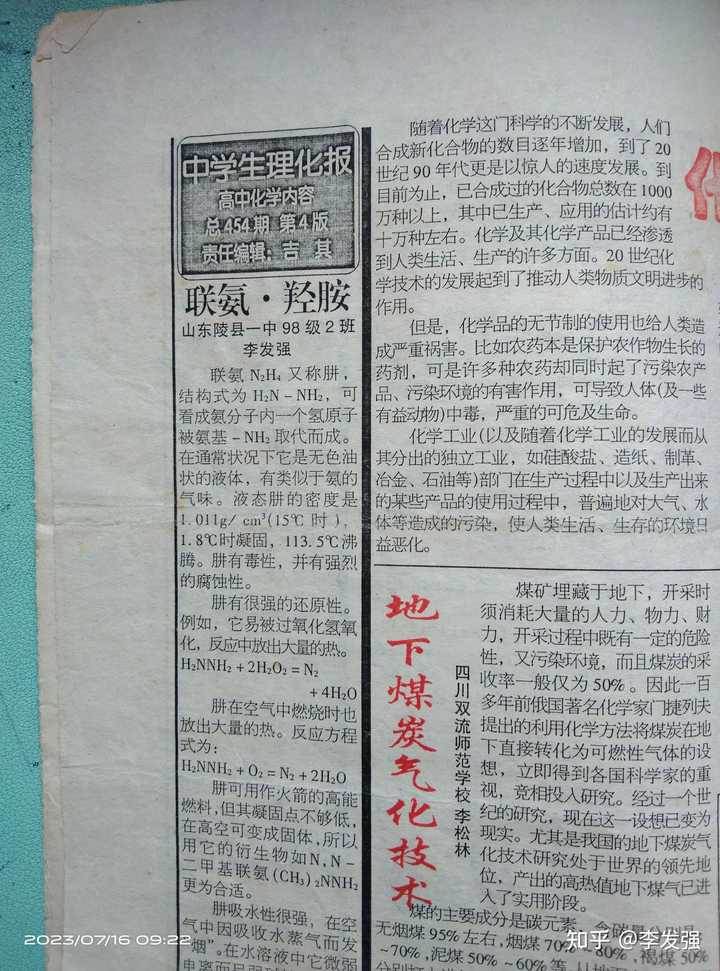 中学生理化报
高中化学内容
总454期 第4版
责任编辑：吉 其
联氨·羟胺
山东陵县一中98级2班
李发强
联氨 N₂H₄ 又称肼，
结构式为 H₂N－NH₂，可
看成氨分子内一个氢原子
被氨基－NH₂ 取代而成。
在通常状况下它是无色油
状的液体，有类似于氨的
气味。液态肼的密度是
1.011g/cm³(15℃时)，
1.8℃时凝固，113.5℃沸
腾。肼有毒性，并有强烈
的腐蚀性。
肼有很强的还原性。
例如，它易被过氧化氢氧
化，反应中放出大量的热。
H₂NNH₂＋2H₂O₂＝N₂
＋4H₂O
肼在空气中燃烧时也
放出大量的热。反应方程
式为：
H₂NNH₂＋O₂＝N₂＋2H₂O
肼可用作火箭的高能
燃料，但其凝固点不够低，
在高空可变成固体，所以
用它的衍生物如N,N－
二甲基联氨(CH₃)₂NNH₂
更为合适。
肼吸水性很强，在空
气中因吸收水蒸气而发
烟”。在水溶液中它微弱
随着化学这门科学的不断发展，人们
合成新化合物的数目逐年增加，到了20
世纪90年代更是以惊人的速度发展。到
目前为止，已合成过的化合物总数在1000
万种以上，其中已生产、应用的估计约有
十万种左右。化学及其化学产品已经渗透
到人类生活、生产的许多方面。20世纪化
学技术的发展起到了推动人类物质文明进步的
作用。
但是，化学品的无节制的使用也给人类造
成严重祸害。比如农药本是保护农作物生长的
药剂，可是许多种农药却同时起了污染农产
品、污染环境的有害作用，可导致人体(及一些
有益动物)中毒，严重的可危及生命。
化学工业(以及随着化学工业的发展而从
其分出的独立工业，如硅酸盐、造纸、制革、
冶金、石油等)部门在生产过程中以及生产出来
的某些产品的使用过程中，普遍地对大气、水
体等造成的污染，使人类生活、生存的环境日
益恶化。
地下煤炭气化技术
四川双流师范学校 李松林
煤矿埋藏于地下，开采时
须消耗大量的人力、物力、财
力，开采过程中既有一定的危险
性，又污染环境，而且煤炭的采
收率一般仅为50%。因此一百
多年前俄国著名化学家门捷列夫
提出的利用化学方法将煤炭在地
下直接转化为可燃性气体的设
想，立即得到各国科学家的重
视，竞相投入研究。经过一个世
纪的研究，现在这一设想已变为
现实。尤其是我国的地下煤炭气
化技术研究处于世界的领先地
位，产出的高热值地下煤气已进
入了实用阶段。
煤的主要成分是碳元素，含碳量
无烟煤95%左右，烟煤70%～80%，褐煤50%
～70%，泥煤50%～60%等
2023/07/16 09:22
知乎 @李发强